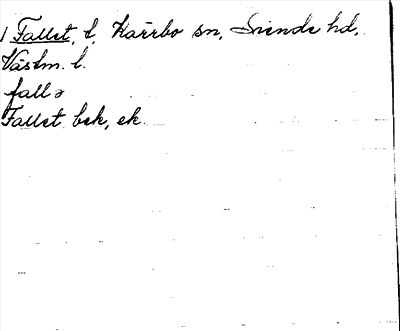 1 Fallet, t, Kärrbo sn, Siende hd,
Västm. l.
fallə
Fallet bek, ek.